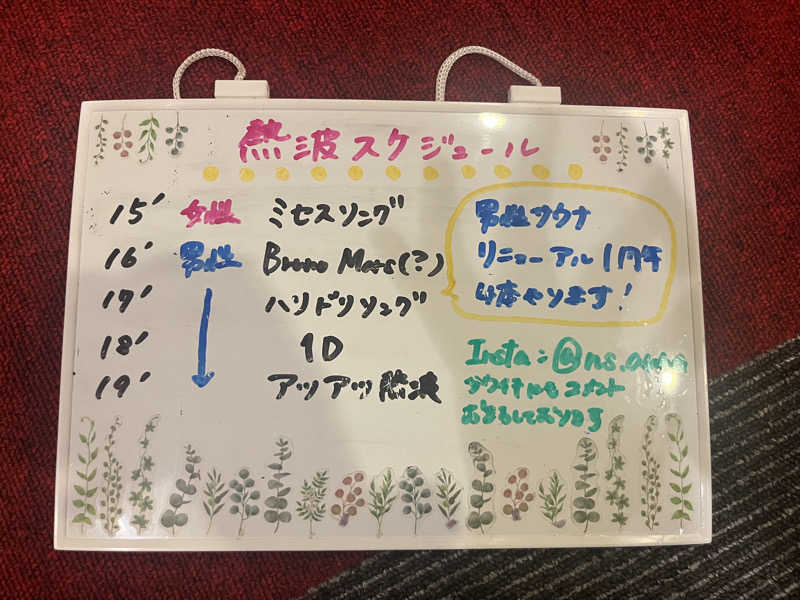 熱波スケジュール
15' 女性 ミセスソング
16' 男性 Bruno Mars(?)
17' ハリドリソング
18' 1D
19' アツアツ熱波
男性サウナ
リニューアル1周年
4本やります!
Insta:@ns.
サウイキにもコメント
お待ちしております